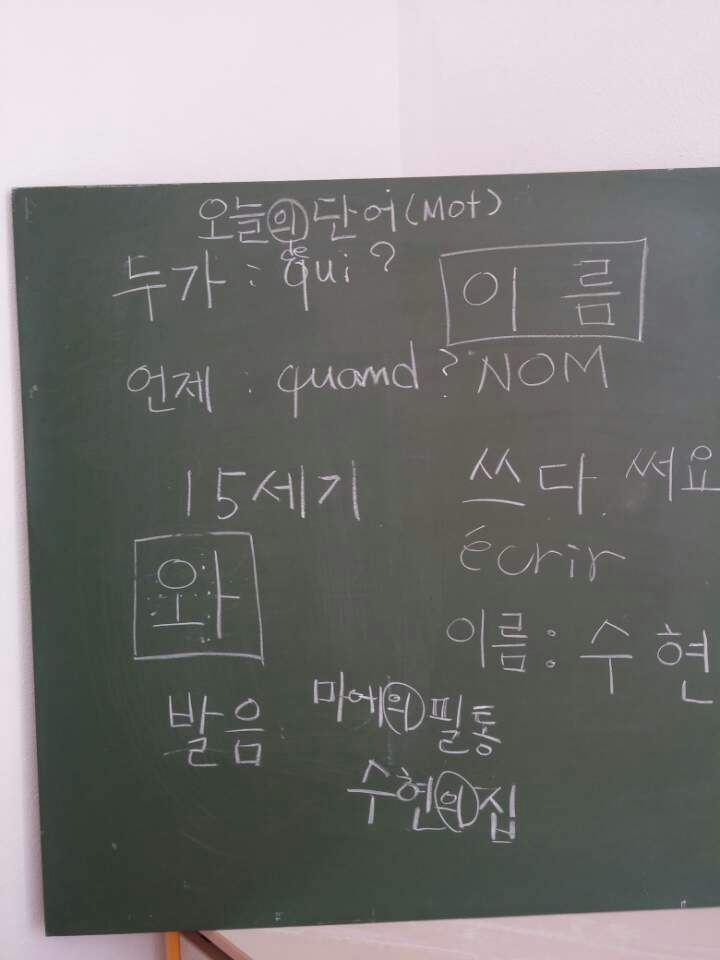 오늘의 단어(Mot)
de
누가 : qui ?
이름
언제 : quand ?
NOM
15세기
쓰다 써요
écrir
와
이름: 수현
발음
마에의 필통
수현의 집